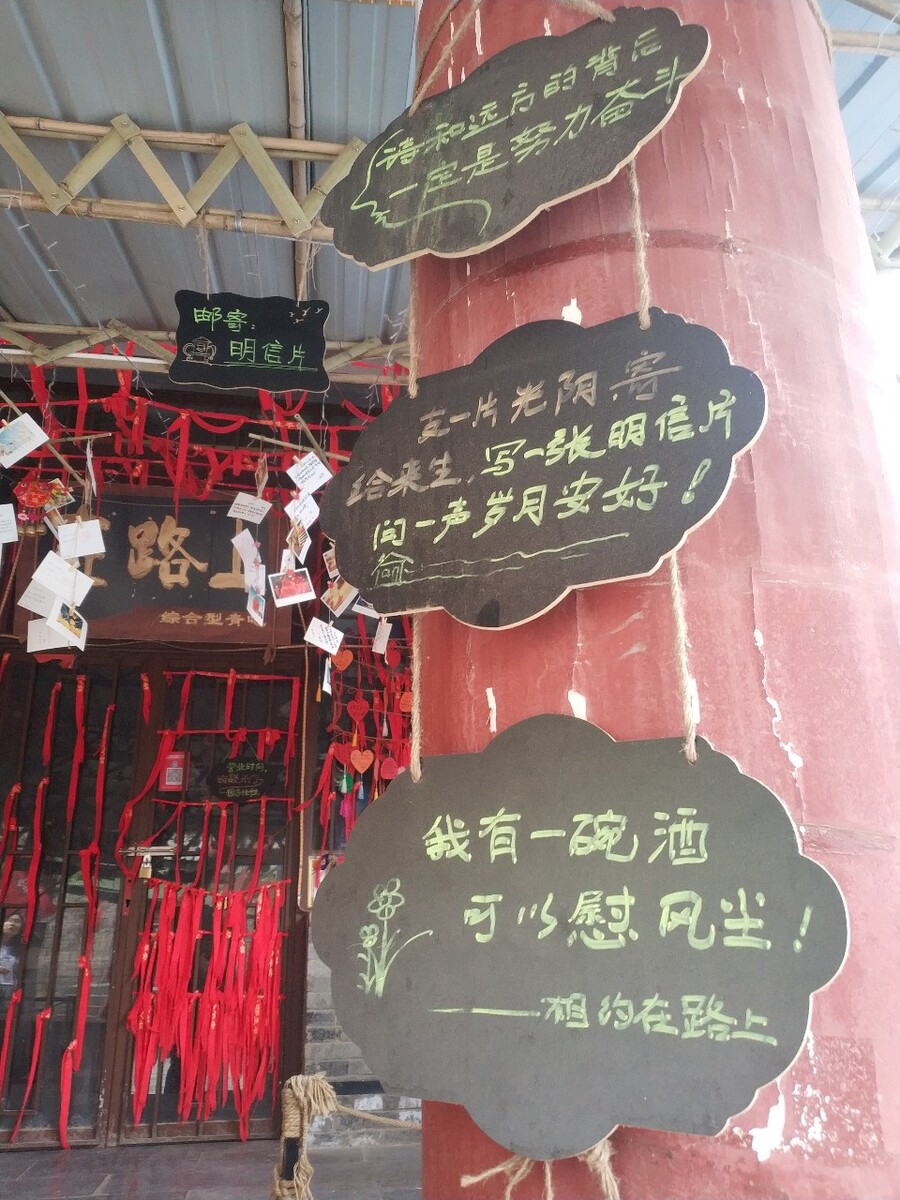 诗和远方的背后
一定是努力奋斗
邮寄:
明信片
支一片光阴寄
给来生,写一张明信片
问一声岁月安好!
路上
综合型青
营业时间
我有一碗酒
可以慰风尘!
——相约在路上